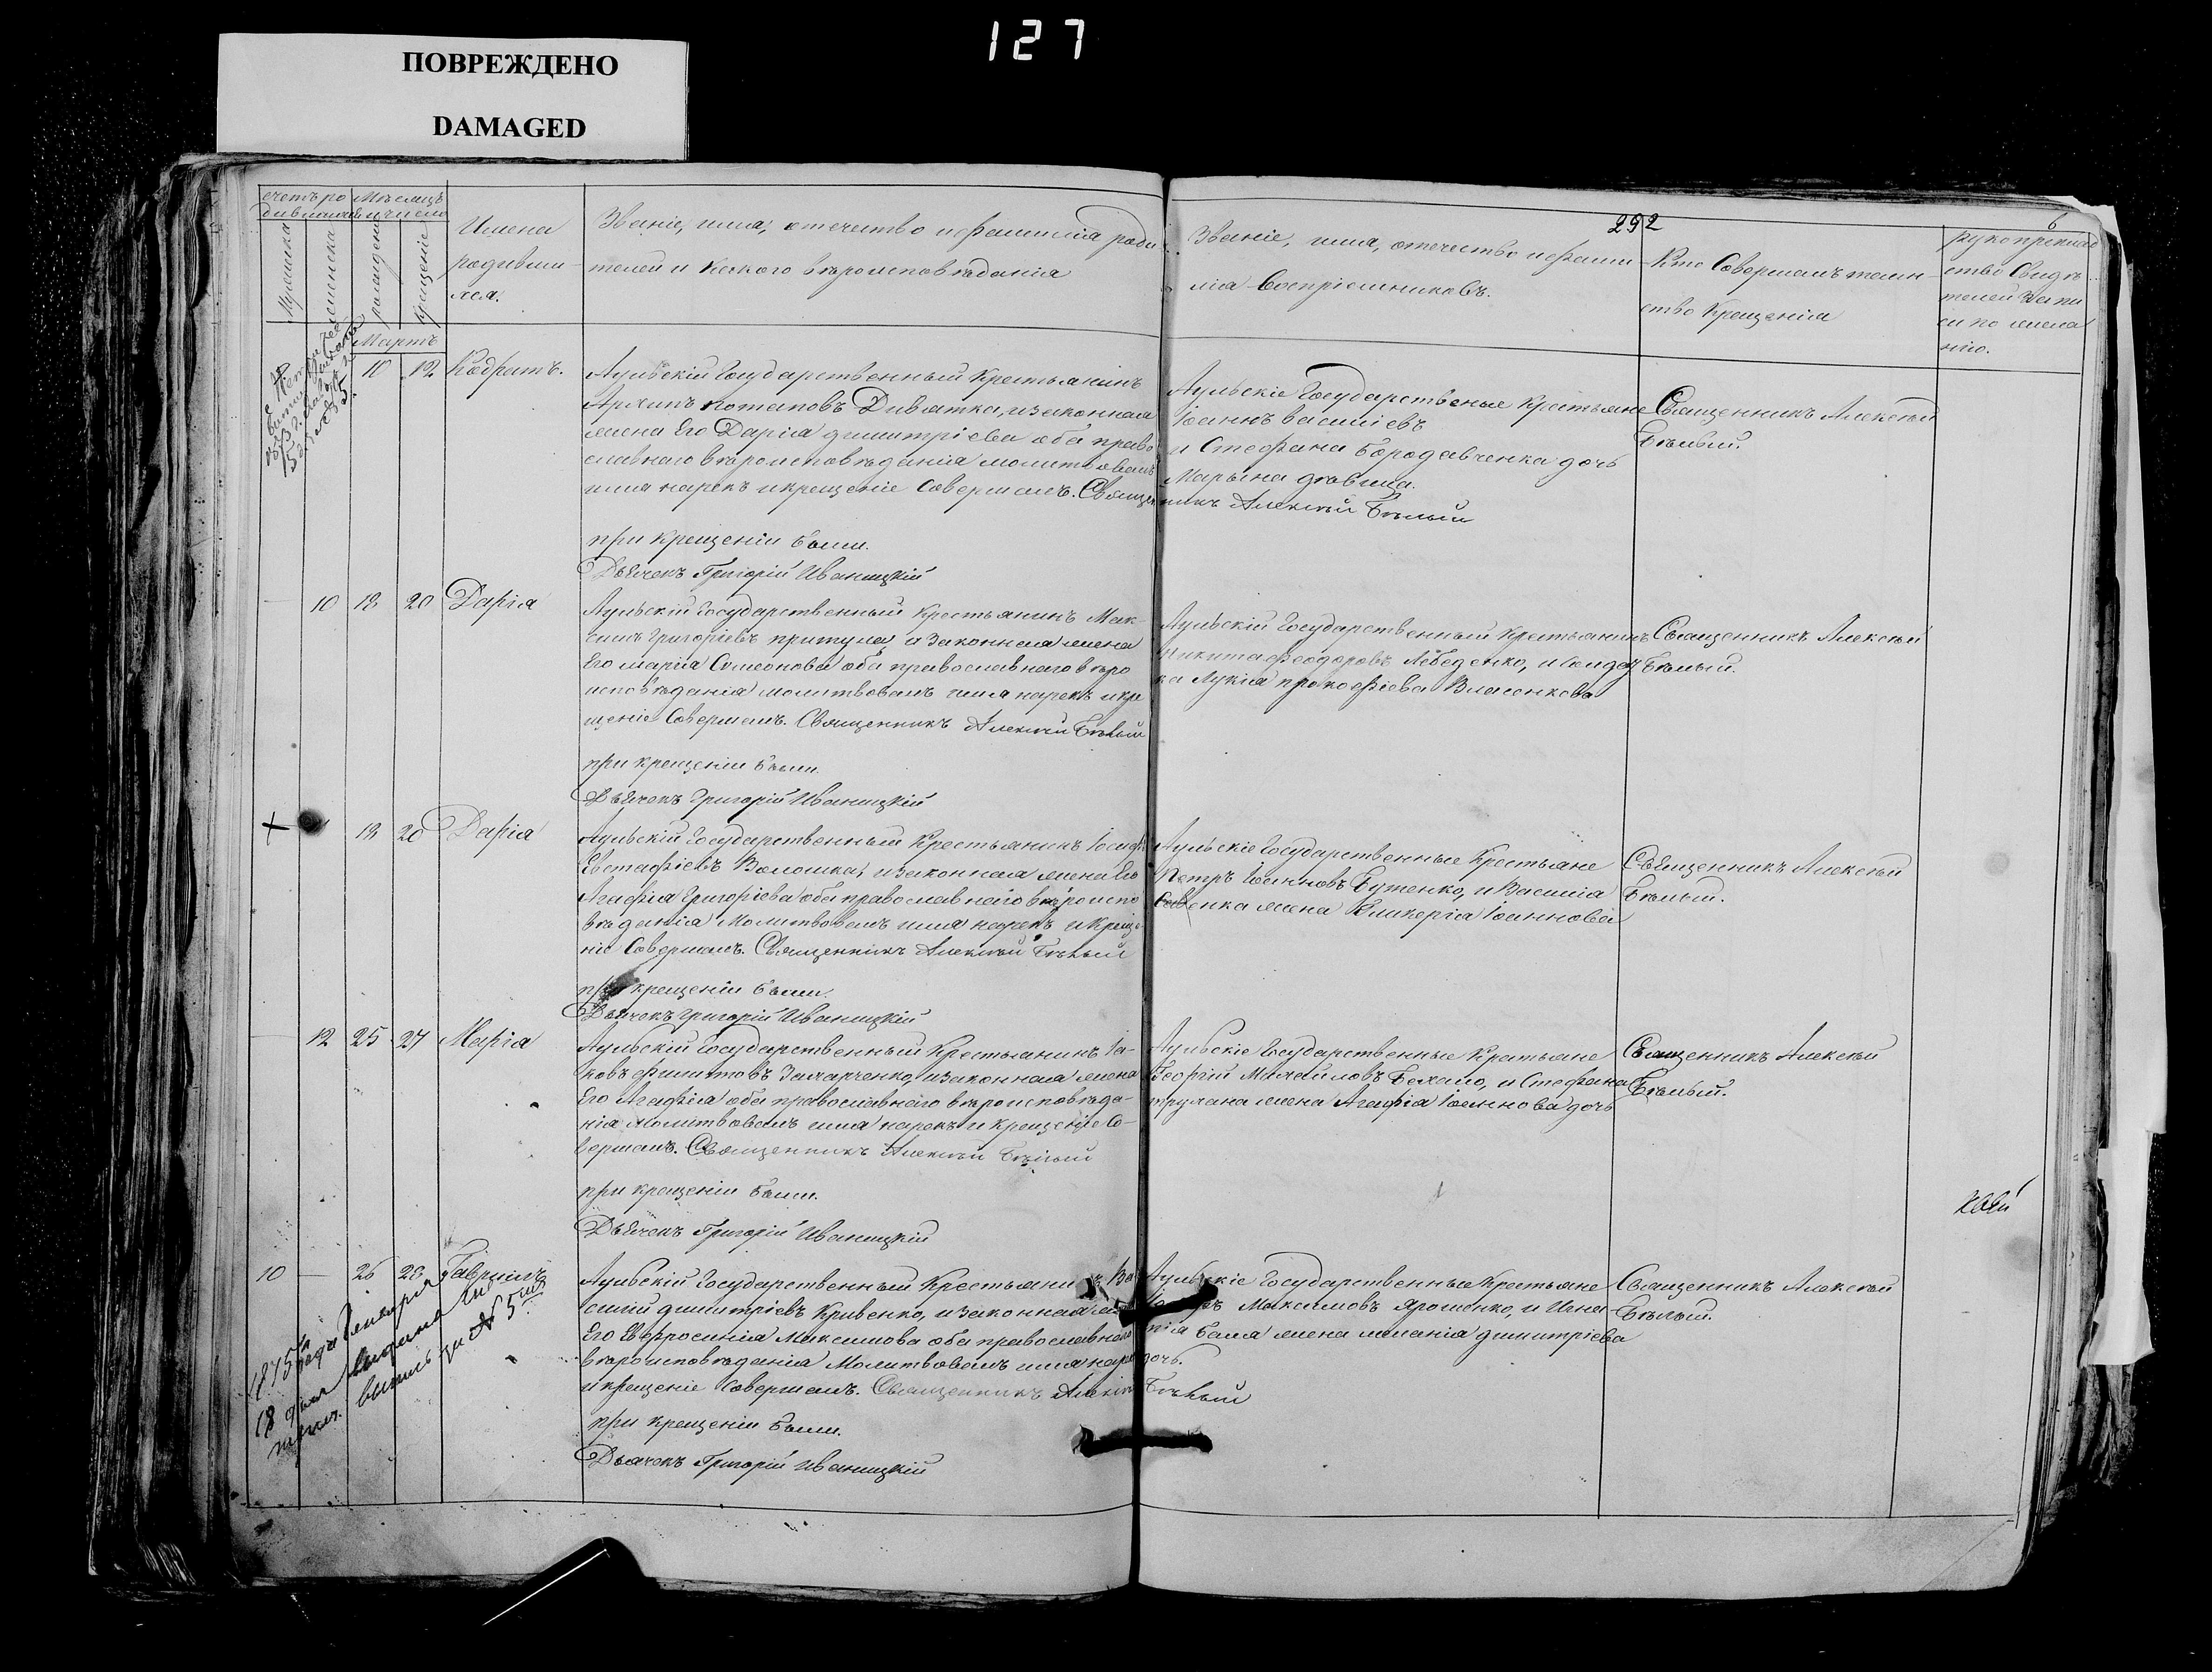 127
ПОВРЕЖДЕНО
DAMAGED
292
6
счетъ ро
Мѣсяцъ
и число
рожденіе
крещеніе
Имена
родивши
хся.
Званіе, имя, отечество и фамилія роди
телей и какого вѣроисповѣданія
Званіе, имя, отечество и фами
лія воспріемниковъ.
Кто совершалъ таин
ство крещенія
рукоприклад
ство свидѣ
телей записи
по жела
нію.
Мартъ
10 12 Кодратъ.
Аульскій Государственный Крестьянинъ
Архипъ Потаповъ Дивятка, и законная
жена Его Дарія Димитріева оба право
славнаго вѣроисповѣданія молитвовалъ
имя нарекъ и крещеніе совершалъ. Священ
никъ Алексѣй Бѣлый
при крещеніи были.
Дьячекъ Григорій Иваницкій
Аульскіе Государственые Крестьяне
Іоаннъ Василіевъ
и Стефана Бородавченка дочь
Марьяна дѣвица.
Священникъ Алексѣй
Бѣлый.
10 18 20 Дарія
Аульскій Государственный Крестьянинъ Мак
симъ Григоріевъ Притула, и законная жена
Его Марія Симеонова оба православнаго вѣро
исповѣданія молитвовалъ имя нарекъ и кре
щеніе совершалъ. Священникъ Алексѣй Бѣлый
при крещеніи были.
Дьячекъ Григорій Иваницкій
Аульскій Государственный Крестьянинъ
Никита Феодоровъ Лебеденко, и солдат
ка Лукія Прокофіева Власенкова
Священникъ Алексѣй
Бѣлый.
18 20 Дарія
Аульскій Государственный Крестьянинъ Іосифъ
Евстафіевъ Волошка, и законная жена Его
Агафія Григоріева оба православнаго вѣроиспо
вѣданія Молитвовалъ имя нарекъ и креще
ніе совершалъ. Священникъ Алексѣй Бѣлый
при крещеніи были.
Дьячекъ Григорій Иваницкій
Аульскіе Государственные Крестьяне
Петръ Іоанновъ Бутенко, и Василія
жена Гликерія Іоаннова
Священникъ Алексѣй
Бѣлый.
12 25 27 Марія
Аульскій Государственный Крестьянинъ Іа-
ковъ Филитовъ Захарченко, и законная жена
Его Агафія оба православнаго вѣроисповѣда-
нія Молитвовалъ имя нарекъ и крещеніе со-
вершалъ. Священникъ Алексѣй Бѣлый
при крещеніи были.
Дьячекъ Григорій Иваницкій
Аульскіе Государственные Крестьяне
Георгій Михайловъ Бехало, и Стефана
жена Агафія Іоаннова дочь
Священникъ Алексѣй
Бѣлый.
10 — 26 28 Гавріилъ
Аульскій Государственный Крестьянинъ Ва
силій Димитріевъ Кривенко, и законная жена
Его Евфросинія Максимова оба православнаго
вѣроисповѣданія Молитвовалъ имя нарекъ
и крещеніе совершалъ. Священникъ Алексѣй Бѣлый
при крещеніи были.
Дьячекъ Григорій Иваницкій
Аульскіе Государственные Крестьяне
Максимовъ Ярошенко, и Игна
тія жена Меланія Димитріева
дочь.
Священникъ Алексѣй
Бѣлый.
1875 года Генваря
18 дня выдана
выпись за № 5